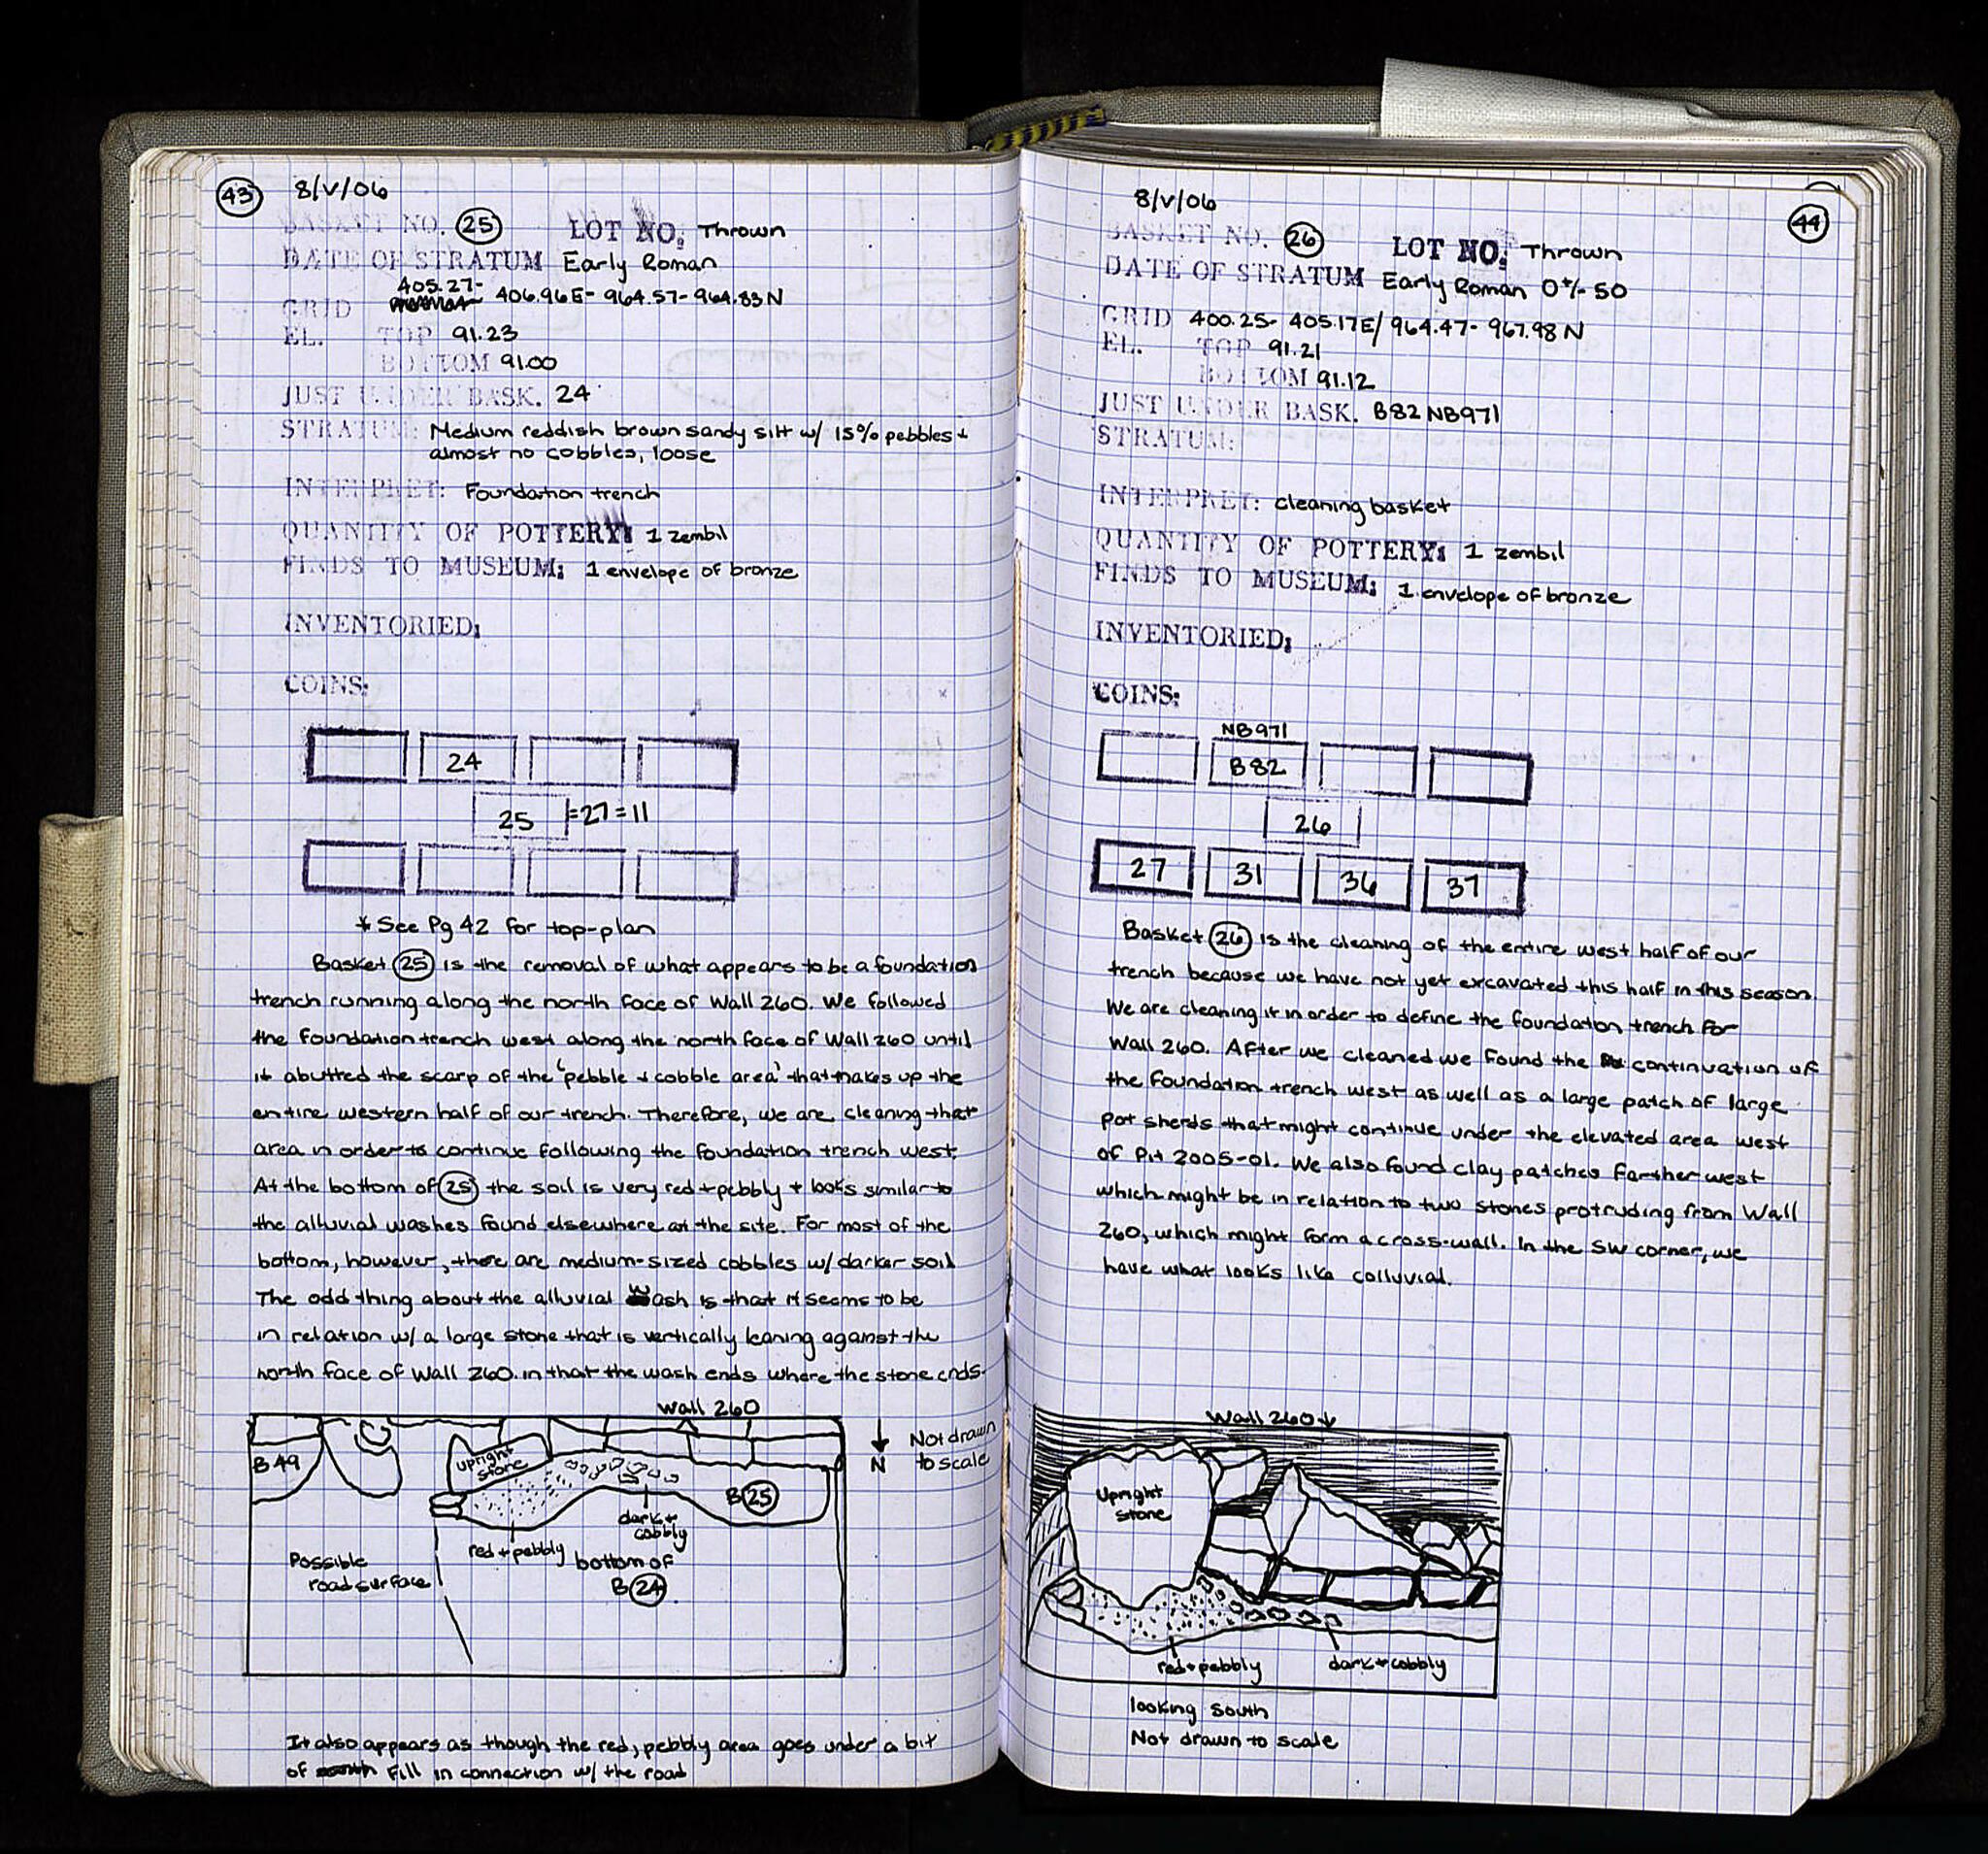 43
8/V/06
BASKET NO. 25 LOT NO: Thrown
DATE OF STRATUM Early Roman
405.27-
GRID 406.96E- 964.57- 964.83N
EL. TOP 91.23
BOTTOM 91.00
JUST UNDER BASK. 24
STRATUM: Medium reddish brown sandy silt w/ 15% pebbles +
almost no cobbles, loose
INTERPRET: Foundation trench
QUANTITY OF POTTERY: 1 zembil
FINDS TO MUSEUM: 1 envelope of bronze
INVENTORIED:
COINS:
24
25 =27=11
* See Pg 42 for top-plan
Basket 25 is the removal of what appears to be a foundation
trench running along the north face of Wall 260. We followed
the foundation trench west along the north face of Wall 260 until
it abutted the scarp of the 'pebble + cobble area' that makes up the
entire western half of our trench. Therefore, we are cleaning that
area in order to continue following the foundation trench west.
At the bottom of 25 the soil is very red + pebbly + looks similar to
the alluvial washes found elsewhere at the site. For most of the
bottom, however, there are medium-sized cobbles w/ darker soil
The odd thing about the alluvial wash is that it seems to be
in relation w/ a large stone that is vertically leaning against the
north face of Wall 260. in that the wash ends where the stone ends.
Wall 260
B49
upright
stone
B 25
dark +
cobbly
red + pebbly
bottom of
B 24
Possible
road surface
N
Not drawn
to scale
It also appears as though the red, pebbly area goes under a bit
of fill in connection w/ the road
44
8/V/06
BASKET NO. 26 LOT NO: Thrown
DATE OF STRATUM Early Roman 0+/- 50
GRID 400.25- 405.17E/ 964.47- 967.98 N
EL. TOP 91.21
BOTTOM 91.12
JUST UNDER BASK. B82 NB971
STRATUM:
INTERPRET: cleaning basket
QUANTITY OF POTTERY: 1 zembil
FINDS TO MUSEUM: 1 envelope of bronze
INVENTORIED:
COINS:
NB971
B82
26
27 31 36 37
Basket 26 is the cleaning of the entire west half of our
trench because we have not yet excavated this half in this season.
We are cleaning it in order to define the foundation trench for
Wall 260. After we cleaned we found the continuation of
the foundation trench west as well as a large patch of large
pot sherds that might continue under the elevated area west
of Pit 2005-01. We also found clay patches farther west
which might be in relation to two stones protruding from Wall
260, which might form a cross-wall. In the SW corner, we
have what looks like colluvial.
Wall 260↓
Upright
stone
red + pebbly dark + cobbly
looking south
Not drawn to scale